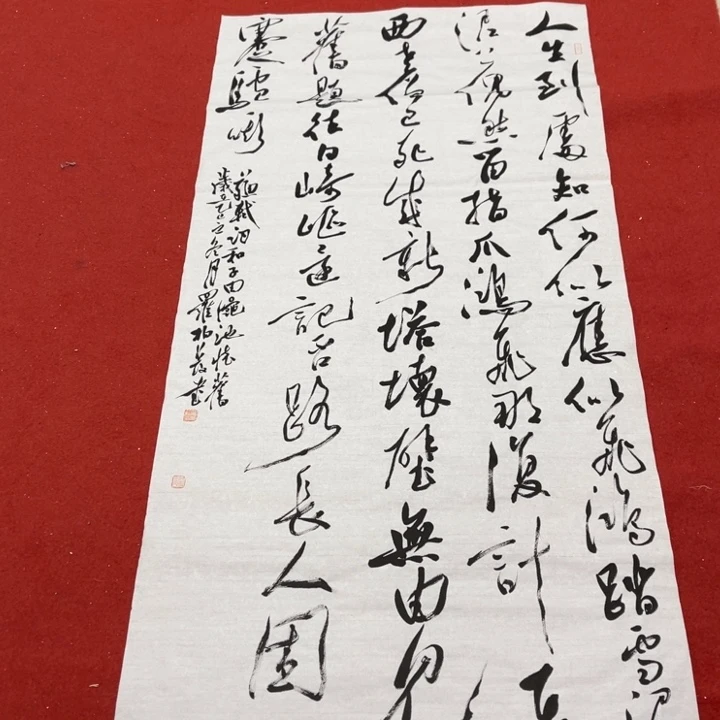 人生到處知何似應似飛鴻踏雪泥
泥上偶然留指爪鴻飛那復計東
西老僧已死成新塔壞壁無由見
舊題往日崎嶇還記否路長人困
蹇驢嘶
蘇軾詩和子由澠池懷舊
歲冬月羅書